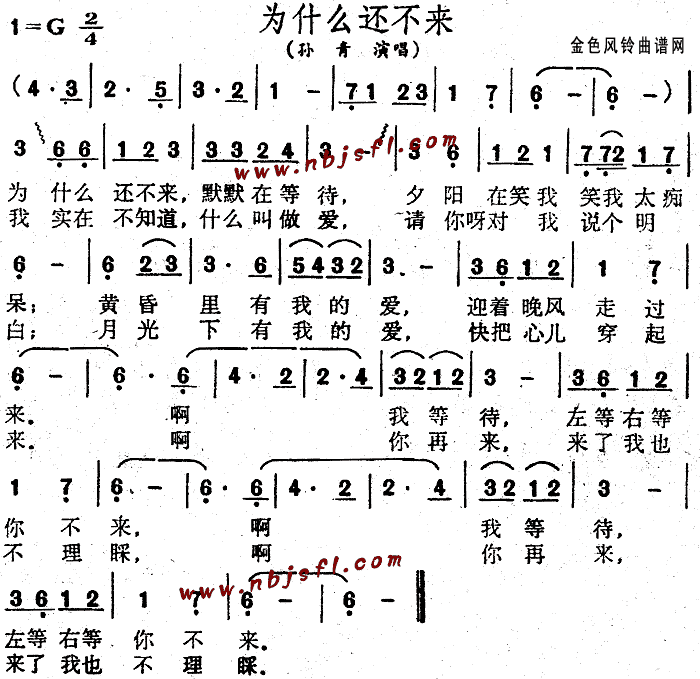 为什么还不来
1=G 2/4
(孙 青 演唱)
金色风铃曲谱网
(4·3 | 2·5 | 3·2 | 1 - | 71 23 | 1 7 | 6 - | 6 - ) |
3 66 | 12 3 | 33 24 | 3 - | 3 6 | 12 1 | 772 17 |
www.nbjsfl.com
为 什么 还不来, 默默在等待, 夕阳 在笑我 笑我太痴
我 实在 不知道, 什么叫做爱, 请你呀对 我 说个明
6 - | 6 23 | 3·6 | 5432 | 3 - | 36 12 | 1 7 |
呆; 黄昏 里有我的爱, 迎着晚风 走过
白; 月光 下有我的爱, 快把心儿 穿起
6 - | 6·6 | 4·2 | 2·4 | 3212 | 3 - | 36 12 |
来. 啊 我等待, 左等右等
来. 啊 你再来, 来了我也
1 7 | 6 - | 6·6 | 4·2 | 2·4 | 32 12 | 3 - |
你不来, 啊 我等待,
不理睬, 啊 你再来,
www.nbjsfl.com
36 12 | 1 7 | 6 - | 6 - ‖
左等右等 你不来.
来了我也 不理睬.